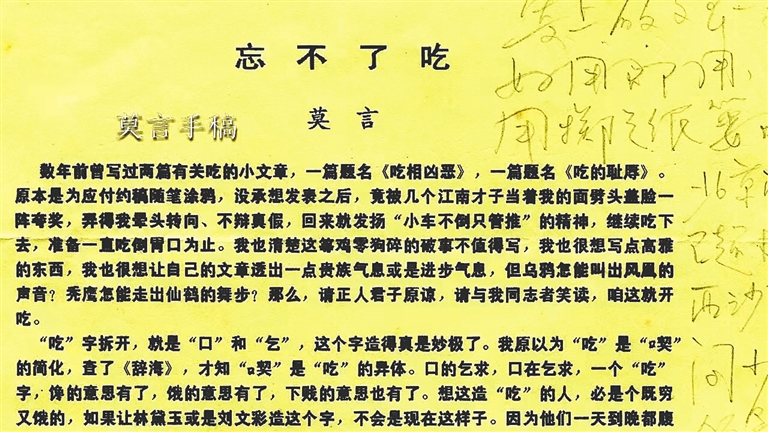 忘不了吃
莫言手稿
莫言
数年前曾写过两篇有关吃的小文章，一篇题名《吃相凶恶》，一篇题名《吃的耻辱》。
原本是为应付约稿随笔涂鸦，没承想发表之后，竟被几个江南才子当着我的面劈头盖脸一
阵夸奖，弄得我晕头转向、不辩真假，回来就发扬“小车不倒只管推”的精神，继续吃下
去，准备一直吃倒胃口为止。我也清楚这等鸡零狗碎的破事不值得写，我也很想写点高雅
的东西，我也很想让自己的文章透出一点贵族气息或是进步气息，但乌鸦怎能叫出凤凰的
声音？秃鹰怎能走出仙鹤的舞步？那么，请正人君子原谅，请与我同志者笑读，咱这就开
吃。
“吃”字拆开，就是“口”和“乞”，这个字造得真是妙极了。我原以为“吃”是“口契”
的简化，查了《辞海》，才知“口契”是“吃”的异体。口的乞求，口在乞求，一个“吃”
字，馋的意思有了，饿的意思有了，下贱的意思也有了。想这造“吃”的人，必是个既穷
又饿的，如果让林黛玉或是刘文彩造这个字，不会是现在这样子。因为他们一天到晚都腹
如用即用，
用掷之纸篓
北京